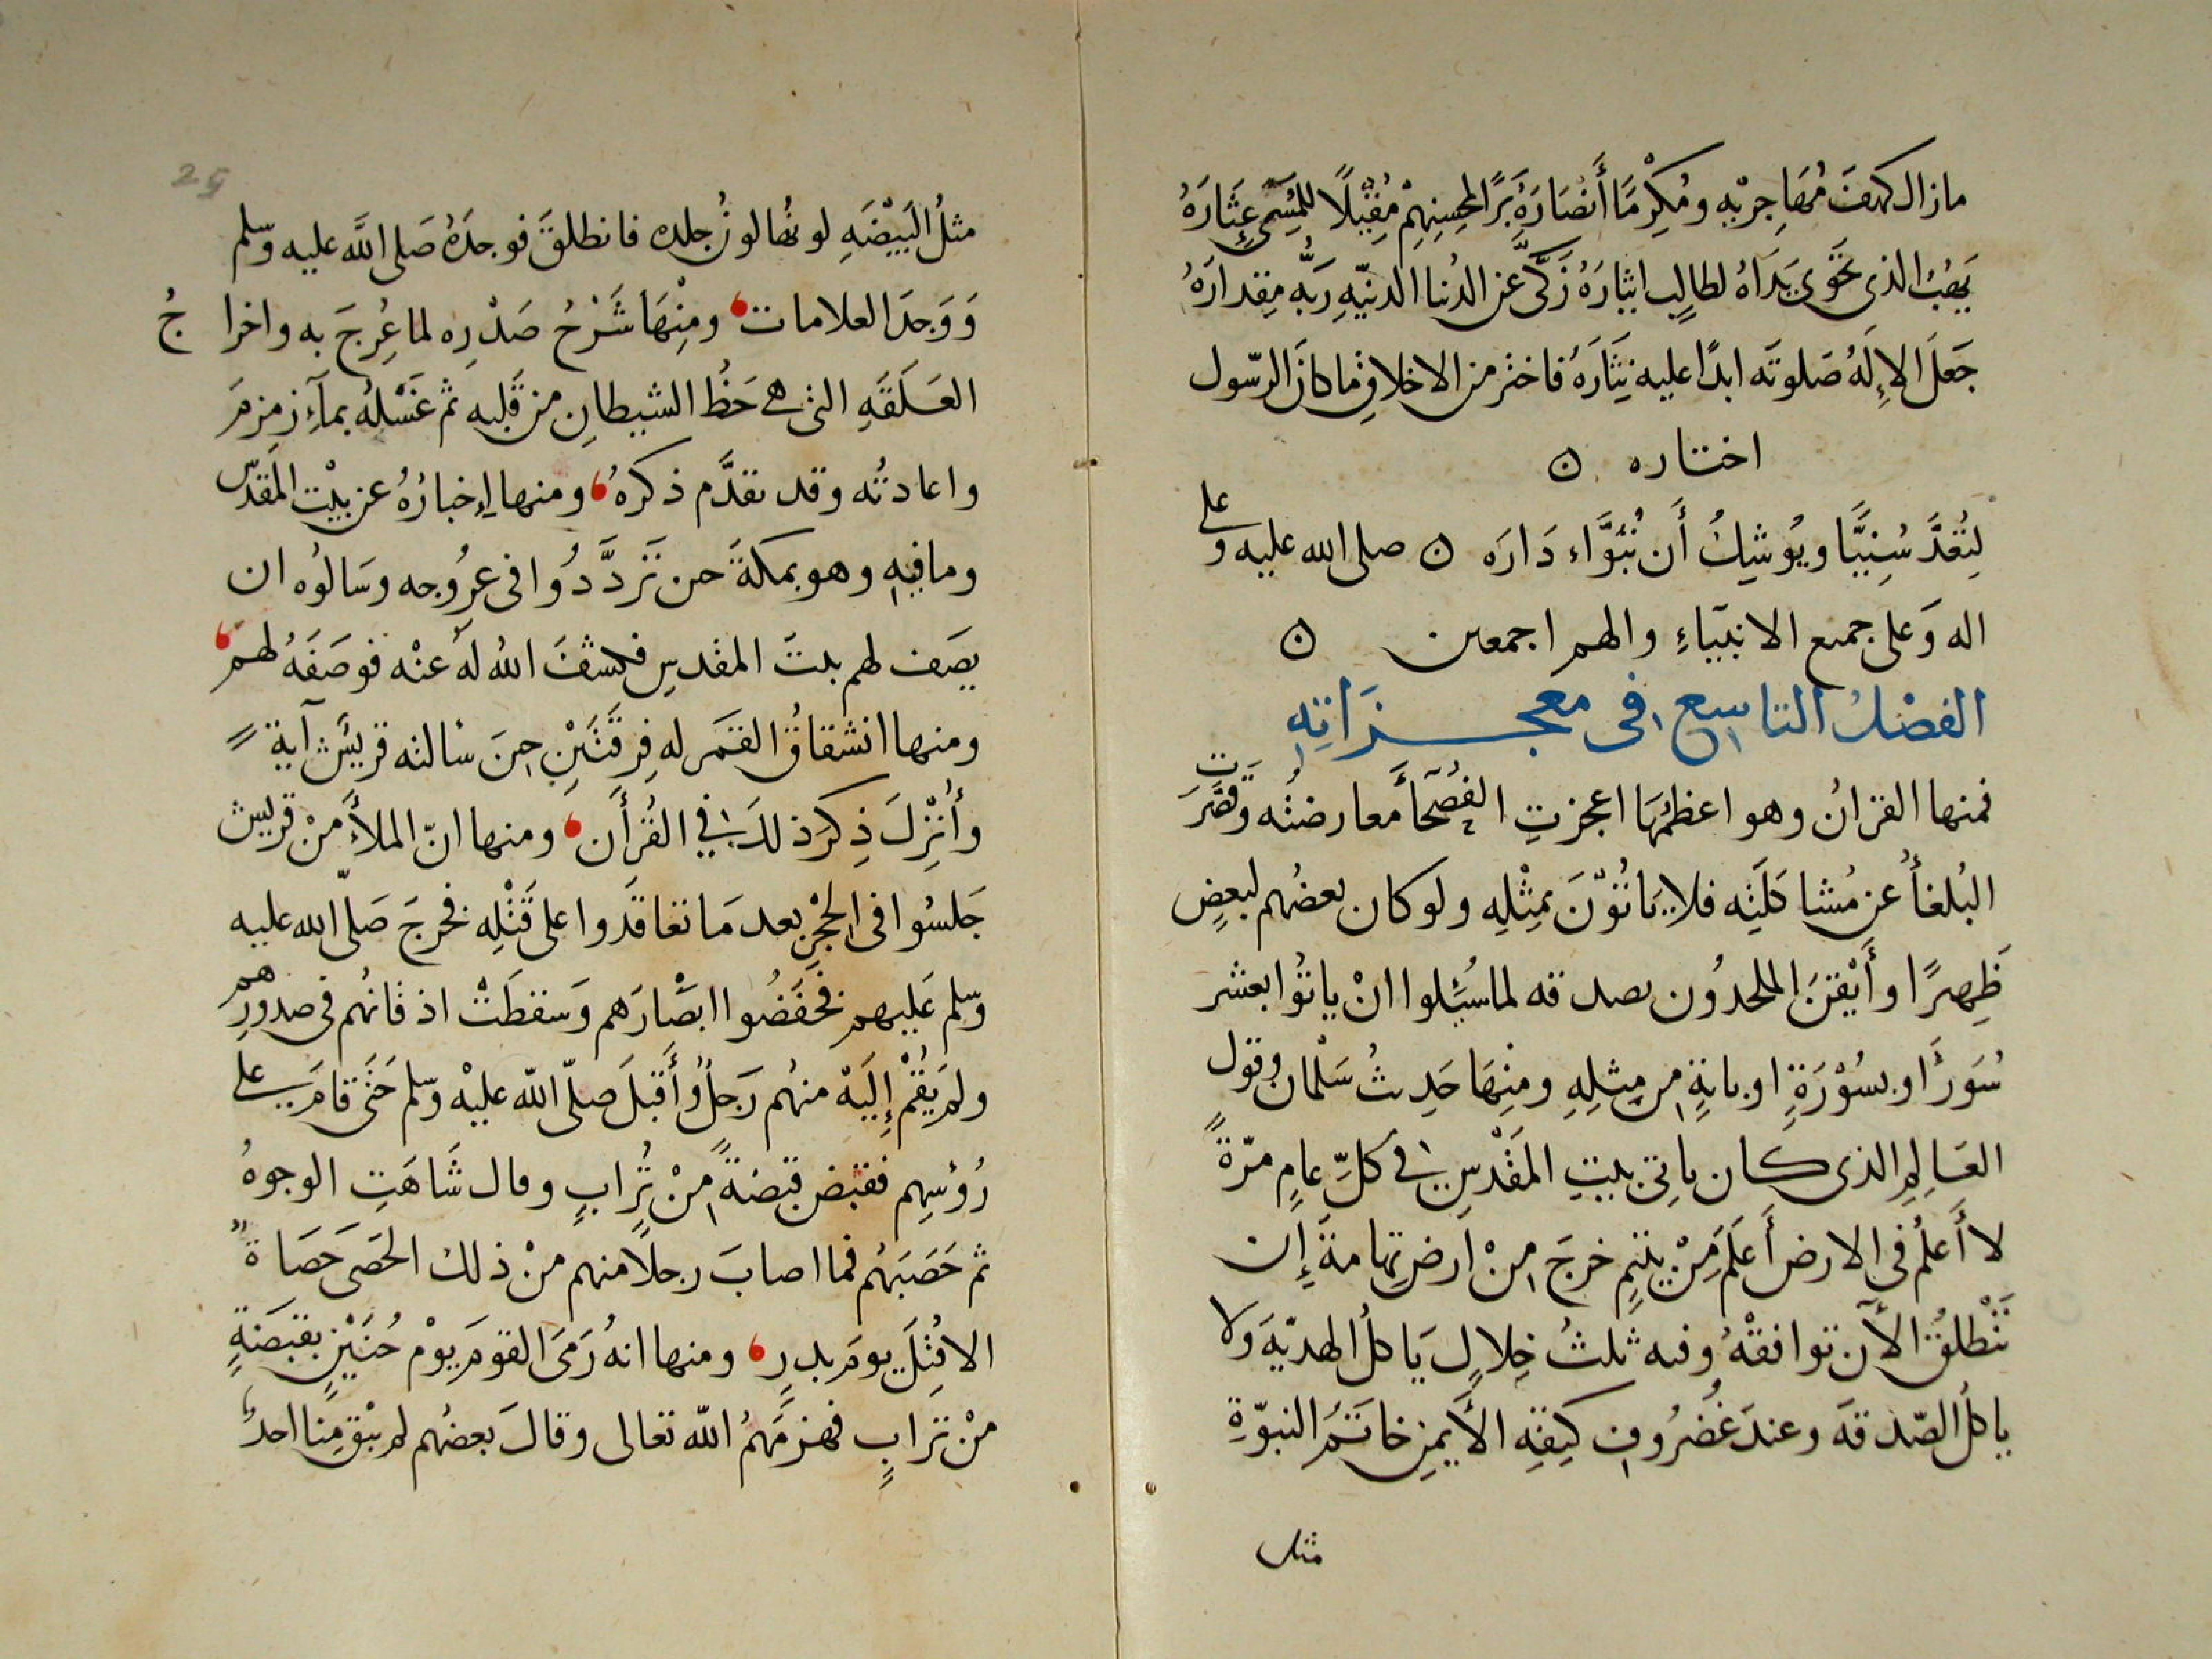 مازال كهفَ مُهَاجِرْيْهِ ومُكِرْمًا أَنْصَارَهُ بَرًا لمحسِنِهِمْ مُقْبلًا للمُسِئِ عِثَارَهُ
يَهَبُ الذى تحَوْى يَدَاهُ لطالِبٍ ايثارَهُ زَكَّى عَنِ الدُنيا الدنيّهِ رَبُّه مِقدارَهُ
جَعَلَ الاِلَهُ صَلوتَه ابدًا عليه نِثَارَهُ فاختَر من الاخلاقِ ما كانَ الرّسول
اختاره ن
لِتُعَدَّ سُنِيًّا ويُوشِكُ أَن تُبَوَّاء دَارَه ن صلى الله عليه وعلى
اله وَعلى جميع الانبيَاءِ والهم اجمعين ن
الفصْلُ التاسِع فى معجزَاتِهِ
فمنها القرانُ وهو اعظمُهَا اعجزتِ الفُصَحَآ معارضتُه وقصَّرَت
البُلغآُ عن مُشاكلَتِه فلا يَاتُوْنَ بمِثْلِهِ ولو كان بعضُهم لبعضٍ
ظَهِيرًا وأَيْقَنَ الملحدُون بصدقه لما سُئِلوا انْ ياتُوا بعشر
سُوَرٍ او بسُوْرَةٍ او باية من مِثلِهِ ومنِهَا حَدِيثُ سَلْمان وقول
العَالِمِ الذى كان ياتِى بيتِ المَقْدِسِ فى كلِّ عامٍ مرّةً
لا أَعلمُ فى الارض أَعلَمَ مِنْ يتيمٍ خرجَ مِنْ اَرضِ تِهامةَ إِن
تَنْطلقُ الأَن توافقْهُ وفيه ثلثُ خِلالٍ يَاكلُ الهديّهَ ولا
ياكلُ الصّدقةَ وعندَ غُضرُوفِ كتِفِهِ الأَيمنِ خاتَمُ النبوّةِ
مثل
25
مثلُ البَيْضَهِ لونُها لونُ جلده فانطلقَ فوجدَهُ صَلى اللّه عليه وسّلم
وَوَجدَ العلامات ومِنْهَا شَرْحُ صَدْرِه لما عُرِجَ به واخراجُ
العَلَقَهِ التى هى حَظُ الشيطانِ من قَلبه ثم غَسْلُهُ بمآءِ زمزمَ
واعادتُه وقد تقدَّم ذكرهُ ومنها إِخبارُهُ عن بيْت المَقدسِ
وما فيه وهو بمكةَ حين تَردَّدُوا فى عرُوجه وسَالوُه ان
يصَف لهم بيتَ المقدسِ فكشفَ اللهُ لهُ عنْه فوصَفَهُ لهم
ومنها انشقاقُ القمَر له فِرقَتَيْنِ حينَ سٔالته قريشٌ آيةً
وأُنْزِلَ ذِكرَ ذلكَ فى القُرأَن ومنها انّ الملأَ مِنْ قريش
جَلسُوا فى الحِجْرِ بعد مَا تعَاقَدوا على قَتْلِه فخرجَ صَلّى الله عليه
وسّلم عَليهم فخفَضُوا ابصْارَهم وَسقطَتْ اذقانُهم فى صدورِهم
ولم يَقُمْ إِلَيْهْ منهُم رَجلٌ وأَقبَلَ صلّى اللّه عليْه وسّلم حَتَى قامَ على
رُؤسِهم فقبَض قبَضةً مِنْ تُرابٍ وقال شَاهَتِ الوجوهُ
ثم حَصَبَهُم فما اصابَ رجلًا منهم مِنْ ذلك الحَصَى حَصَاةٌ
الا قُتِلَ يومَ بدرٍ ومنها انهُ رَمَى القومَ يوْم حُنَيْنٍ بقبضَةٍ
مِنْ ترابٍ فهزمَهمُ اللّه تعالى وقالَ بعضُهم لم يبْقَ مِنا احدٌ